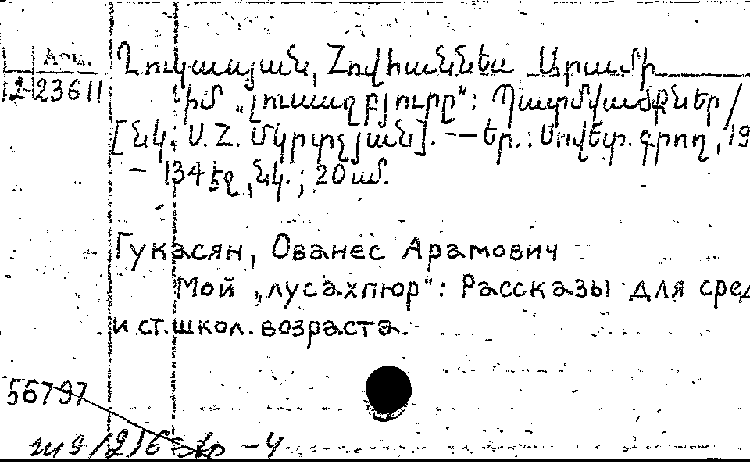 Ղուկասյան, Հովհաննես Արամի
12 23611
Իմ „լուսաղբյուրը“: Պատմվածքներ /
[նկ. Ս. Հ. Մկրտչյան]. — Եր.: Սովետ. գրող, 19
— 134 էջ, նկ.; 20 սմ.
Гукасян, Ованес Арамович
Мой „лусахпюр“: Рассказы для сред
и ст. школ. возраста.
56797